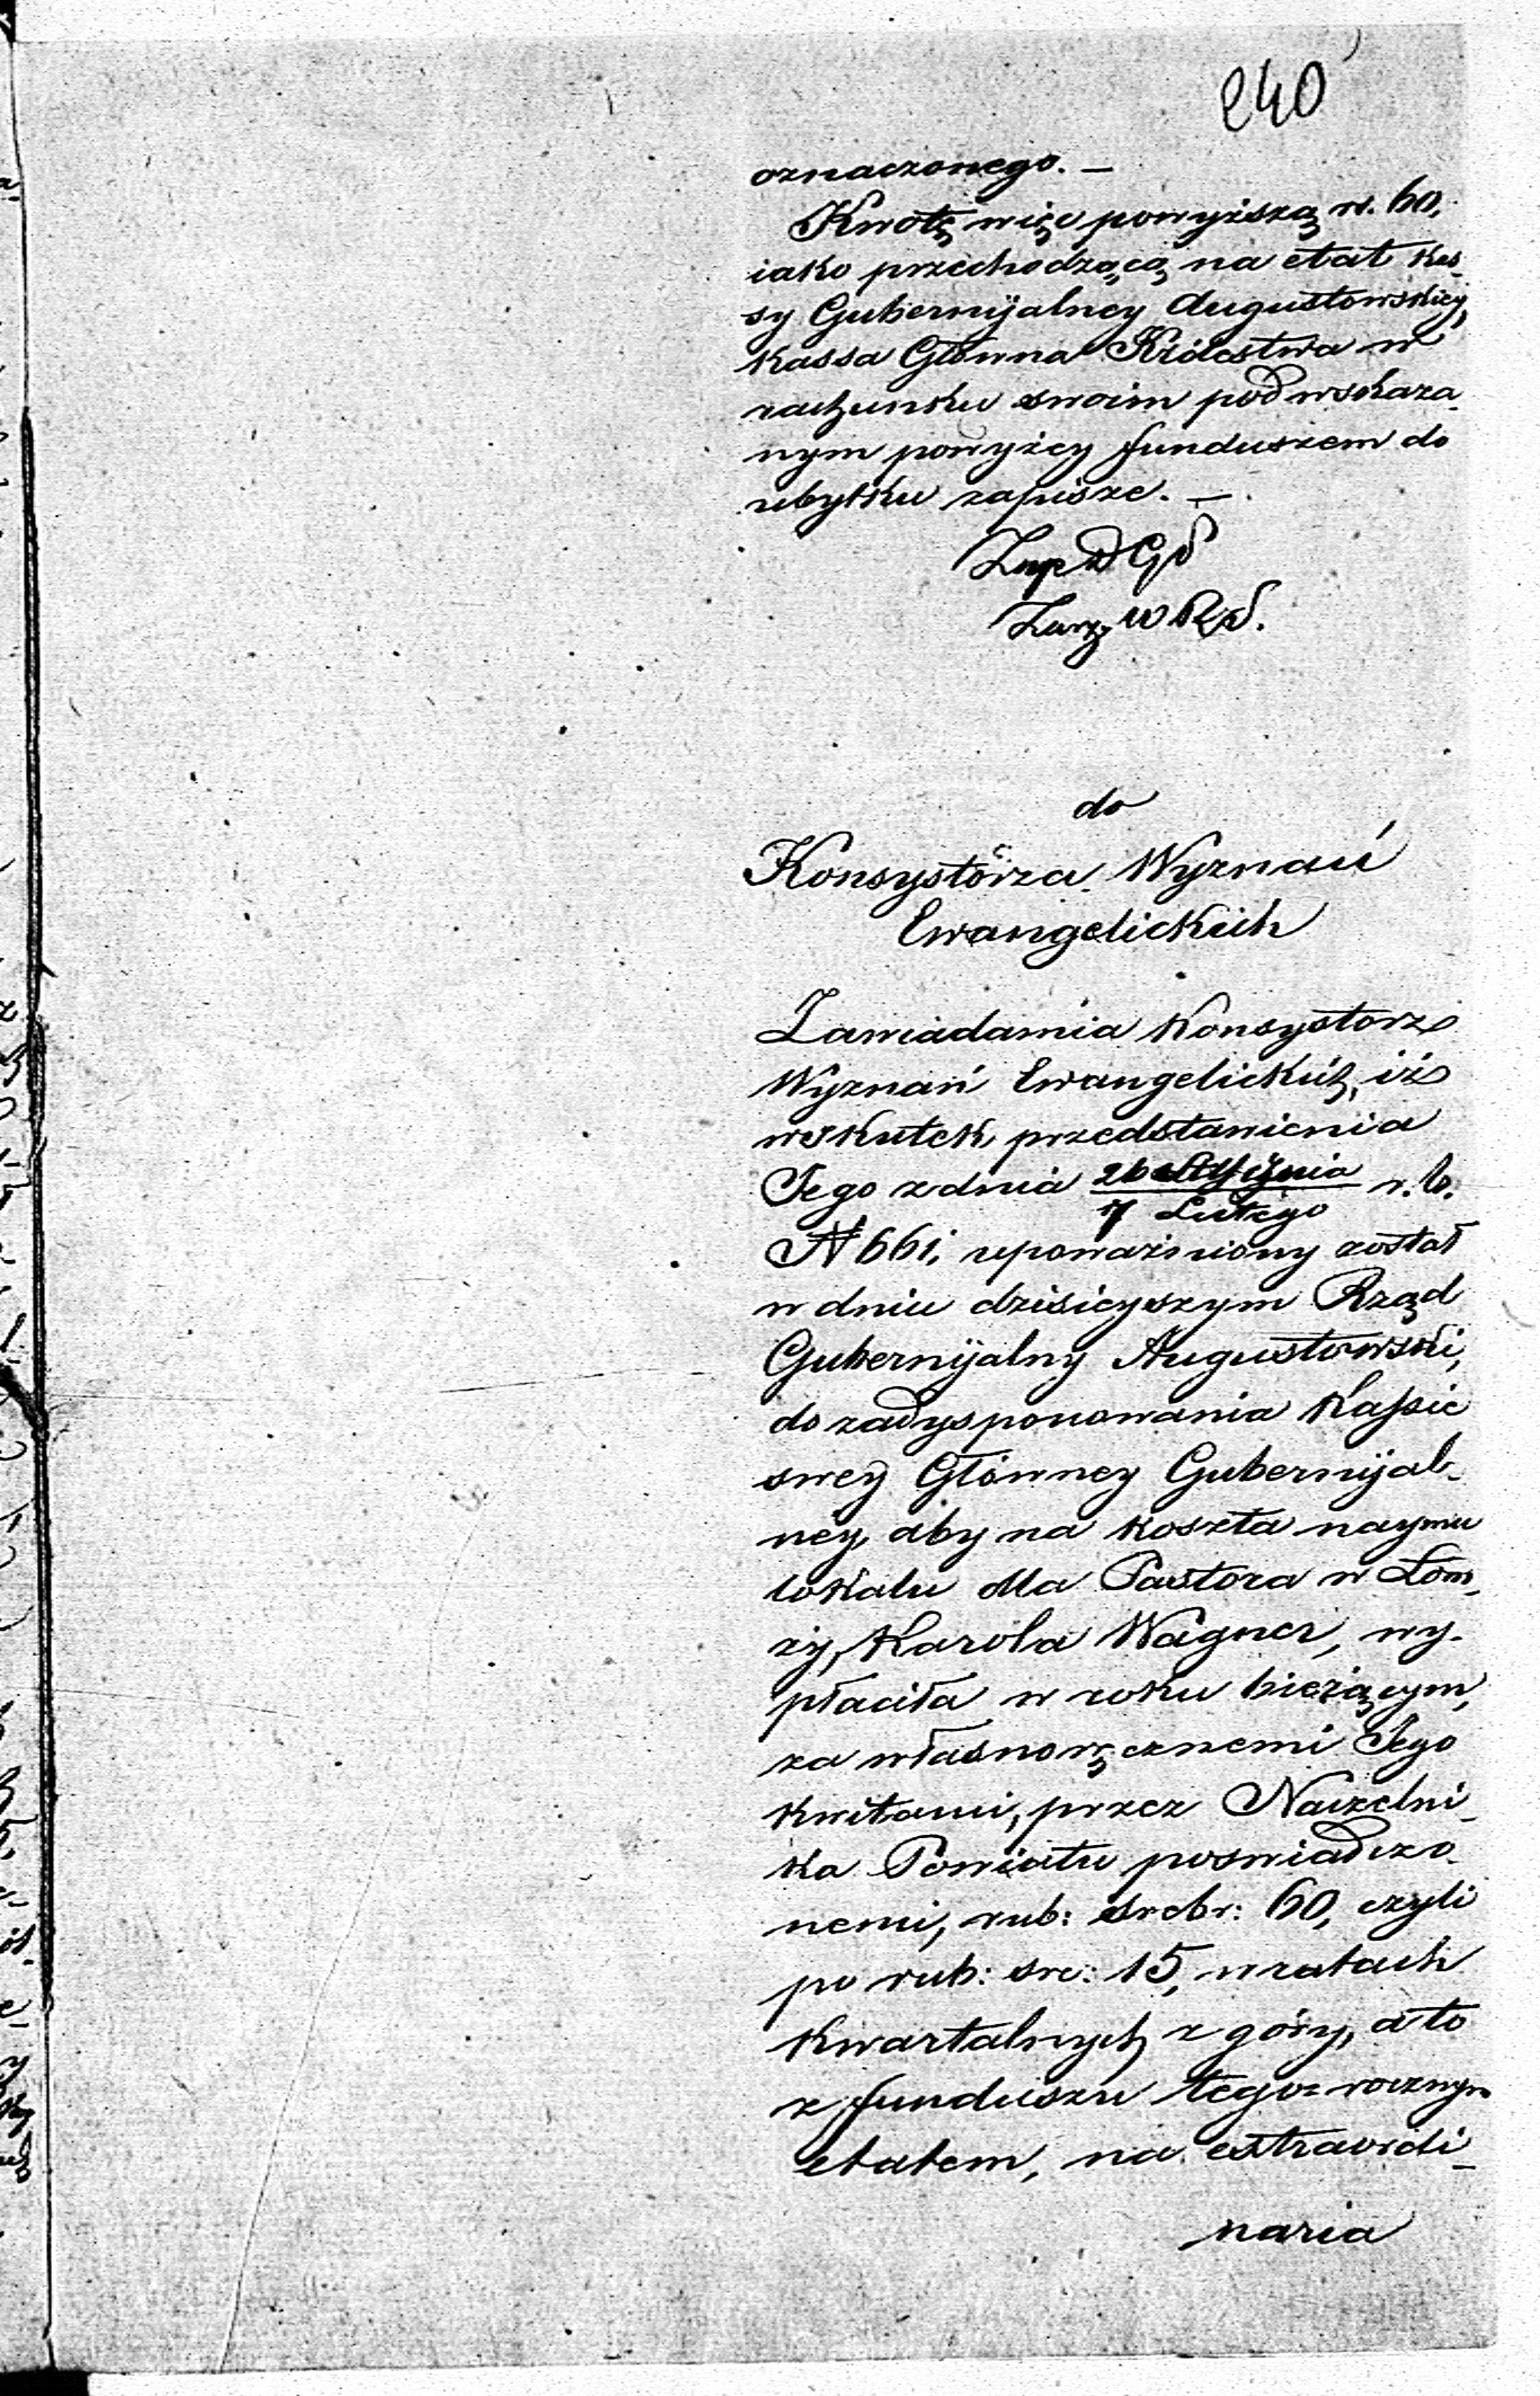 240
oznaczonego. —
Kwotę więc powyższą rs. 60,
iako przechodzącą na etat Kas-
sy Gubernijalney Augustowskiey,
Kassa Główna Królestwa w
rachunku swoim pod wskaza-
nym powyżey funduszem do
ubytku zapisze. —
do
Konsystorza Wyznań
Ewangelickich
Zawiadamia Konsystorz
Wyznań Ewangelickich, iż
wskutek przedstawienia
Jego z dnia 26 Stycznia / 7 Lutego r. b.
N 661, upoważniony został
w dniu dzisieyszym Rząd
Gubernijalny Augustowski,
do zadysponowania Kassie
swey Główney Gubernijal-
ney, aby na koszta naymu
lokalu dla Pastora w Łom-
ży, Karola Wagner, wy-
płaciła w roku bieżącym,
za własnoręcznemi Jego
kwitami, przez Naczelni-
ka Powiatu poswiadczo-
nemi, rub: srebr: 60, czyli
po rub: sre: 15, w ratach
kwartalnych z góry, a to
z funduszu tegorocznym
etatem, na extraordi-
naria